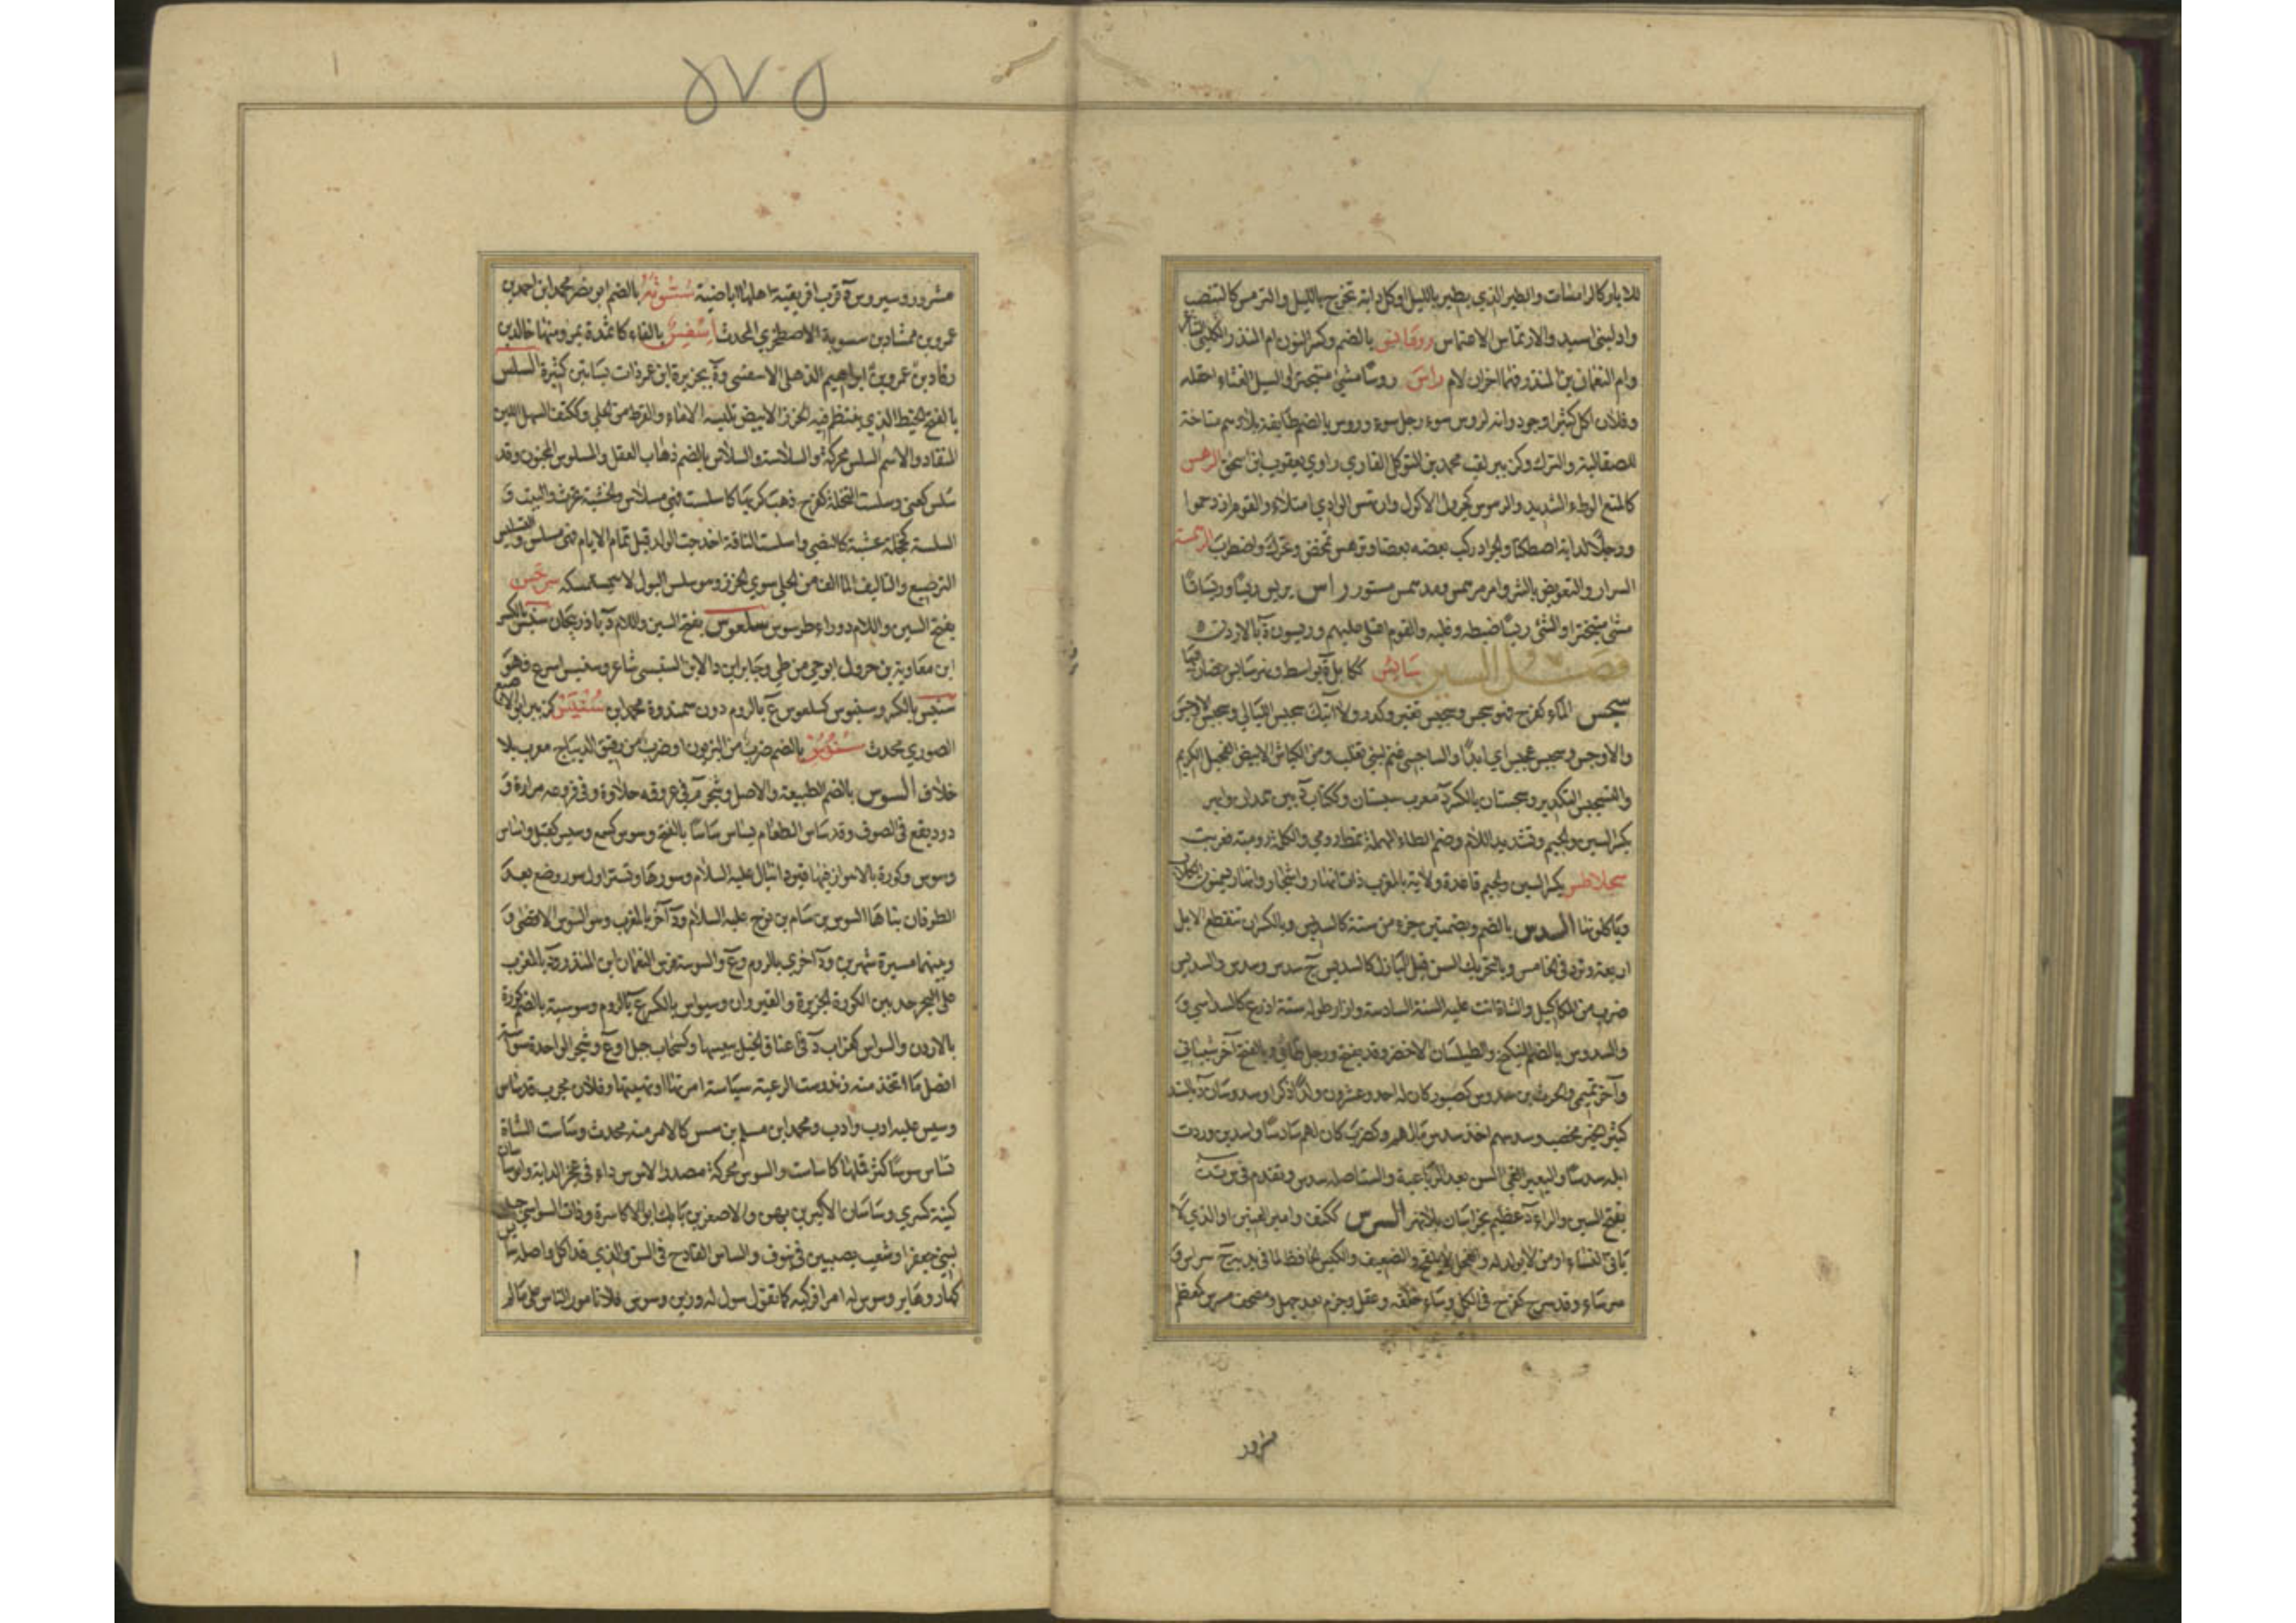 للآبار كالرامسات والطير الذي يطير بالليل او كل دابة تخرج بالليل والترمس كالتنضب
واد لبني اسيد والارتماس الاغتماس رومانس بالضم وكسر النون ام المنذر الكلبي الشاعر
وام النعمان بن المنذر فهما اخوان لام راس روسا مشى متبخترا والسيل الغثاء احتمله
وفلان اكل كثيرا وجود وانه لروس سوء رجل سوء وروس بالضم طايفة بلادهم متاخمة
للصقالبة والترك وكزبير لقب محمد بن المتوكل القاري راوي يعقوب ابن اسحق الرهس
كالمنع الوطء الشديد والرهوس كجرول الاكول وارتهس الوادي امتلاء والقوم ازدحموا
ورجلا الدابة اصطكتا والجراد ركب بعضه بعضا وترهس تمخض وتحرك واضطرب الرهمسة
السرار والتعريض بالشر وامر مرهمس ومدهمس مستور راس يريس ريسا وريسانا
مشى متبخترا والشئ ريسا ضبطه وغلبه والقوم اعتلى عليهم وريسون ة بالاردن
فصل السين سابس ككابل ة بواسط ونهر سابس مضاف اليها
سجس الماء كفرح فهو سجس وسجيس تغير وكدر ولا آتيك سجيس الليالي وسجيس الاوجس
والاوجس وسجيس عجيس اي ابدا والساجسي غنم لبني تغلب ومن الكباش الابيض الفحيل الكريم
والتسجيس التكدير وسجستان بالكسر د معرب سيستان وككتاب د بين همدان وابهر
بكسر السين والجيم وتشديد اللام وضم الطاء المهملة نمط رومي والكلمة رومية فعربت
سجلماسة بكسر السين والجيم قاعدة ولاية بالمغرب ذات انهار واشجار واهلها يسمنون الكلاب
وياكلونها السدس بالضم وبضمتين جزء من ستة كالسديس وبالكسر ان تنقطع الابل
اربعة وترد في الخامس وبالتحريك السن قبل البازل كالسديس ج سدس وسدس والسديس
ضرب من المكاكيل والشاة اتت عليه السنة السادسة وازار طوله ستة اذرع كالسداسي و
والسدوس بالضم النيلج والطيلسان الاخضر وقد يفتح ورجل طائي وبالفتح آخر شيباني
وآخر تميمي والحرث بن سدوس كصبور كان له احد وعشرون ولدا ذكرا وسدوسان د بالسند
كثير الخير مخصب وسدسهم اخذ سدس مالهم وكضرب كان لهم سادسا واسدس وردت
ابله سدسا والبعير القى السن بعد الرباعية والست اصله سدس وتقدم في س ت ت
بفتح السين والراء د عظيم بخراسان بلا نهر السرس ككتف وامير العنين او الذي لا
ياتي النساء او من لا يولد له والفحل لا يلقح والضعيف والكيس الحافظ لما في يديه ج
سرساء وقد سرس كفرح في الكل وساء خلقه وعقل وحزم بعد جهل ومصحف مسرس كمعظم
مشرور
مشرور وسيروس ة قرب افريقية اهلها اباضية سستويه بالضم ابو نصر محمد ابن احمد بن
عمرو بن ممشاد بن سسويه الاصطخري المحدث اسفيس بالفاء كاثمدة بمرو منها خالد بن
رقاد بن عمرو بن ابراهيم الذهلي الاسفسي وة بجزيرة ابن عمر ذات بساتين كثيرة السلس
بالفتح الخيط الذي ينتظم فيه الخرز الابيض تلبسه الاماء والقرط من الحلي وككتف السهل اللين
المنقاد والاسم السلس محركة والسلاسة والسلاس بالضم ذهاب العقل والمسلوس المجنون وقد
سلس كعنى وسلست النخلة كفرح ذهب كربها كاسلست فهي مسلاس والخشبة نخرت والبيت و
السلسة كخجلة عشبة كالنصي واسلست الناقة اخدجت الولد قبل تمام الايام فهي مسلس والتسليس
الترصيع والتاليف لما الف من الحلي سوى الخرز وهو سلس البول لا يستمسكه سرخس
بفتح السين واللام د وراء طرسوس سلماس بفتح السين واللام د باذربيجان سنبس بالكسر
ابن معاوية بن جرول ابو حي من طي وجابر ابن رالان السنبسي شاعر وسنبس اسرع فهو
سنبس بالكسر وسنبوس كسلعوس ع بالروم دون سمندوة محمد ابن سنيس كزبير ابو الاصبع
الصوري محدث سندس بالضم ضرب من البزيون او ضرب من رقيق الديباج معرب بلا
خلاف السوس بالضم الطبيعة والاصل وشجر م في عروقه حلاوة وفي فروعه مرارة و
دود يقع في الصوف وقد ساس الطعام يساس ساسا بالفتح وسوس كسمع وسيس كقيل واساس
وسوس وكورة بالاهواز فيها قبر دانيال عليه السلام وسورها وتستر اول سور وضع بعد
الطوفان بناها السوس بن سام بن نوح عليه السلام ود آخر بالمغرب وهو السوس الاقصى و
وبينهما مسيرة شهرين ود اخرى بالروم وع والسوسة فرس النعمان ابن المنذر ود بالمغرب
على البحر حد بين الكورة الجزيرة والقيروان وسيواس بالكسر ع بالروم وسوسية بالضم كورة
بالاردن والسواس كغراب د في اعناق الخيل ييبسها وكسحاب جبل او ع وشجر الواحدة سواسة
افضل ما اتخذ منه زند وسست الرعية سياسة امرتها ونهيتها وفلان مجرب قد ساس
وسيس عليه ادب وادب ومحمد ابن مسلم بن سس كالامر منه محدث وساست الشاة
تساس سوسا كثر قملها كاساست والسوس محركة مصدر الاسوس داء في عجز الدابة وابو ساسان
كنية كسرى وساسان الاكبر بن بهمن والاصغر بن بابك ابو الاكاسرة وذات السواسي جبل
لبني جعفر او شعب يصببن في ينوف والساس القادح في السن والذي قد اكل واصله سائس
كهار وهاير وسوس له امرا فركبه كما تقول سول له وزين وسوس فلان امور الناس على ما لم
٥٧٥